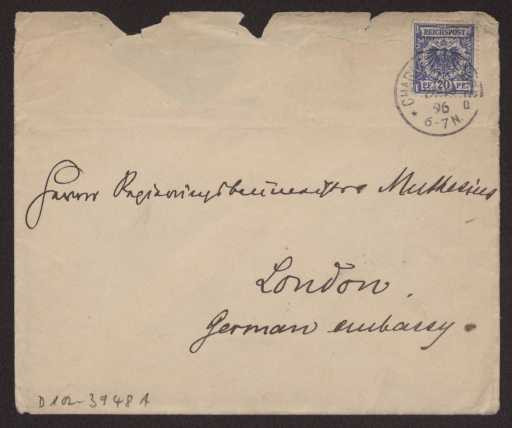 REICHSPOST
20
96
6-7N.
Herrn Regierungsbaumeister Muthesius
London.
German embassy.
D102-3948A